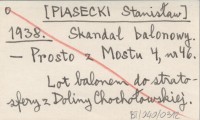 [PIASECKI Stanisław]
1938. Skandal balonowy.
— Prosto z Mostu 4, nr 46.
Lot balonem do strato-
sfery z Doliny Chochołowskiej.